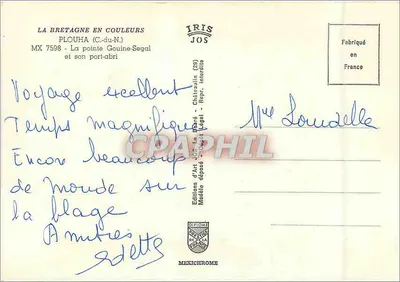 LA BRETAGNE EN COULEURS
PLOUHA (C.-du-N.)
MX 7598 - La pointe Gouine-Segal
et son port-abri
IRIS
JOS
Fabriqué
en
France
Voyage excellent
Temps magnifique
Encore beaucoup
de monde sur
la plage
Amitiés
Odette
Mme
Editions d'Art Jos Le Doaré - Châteaulin (29)
Modèle déposé - Dépôt Légal - Repr. interdite
CPARPHIL
MEXICHROME